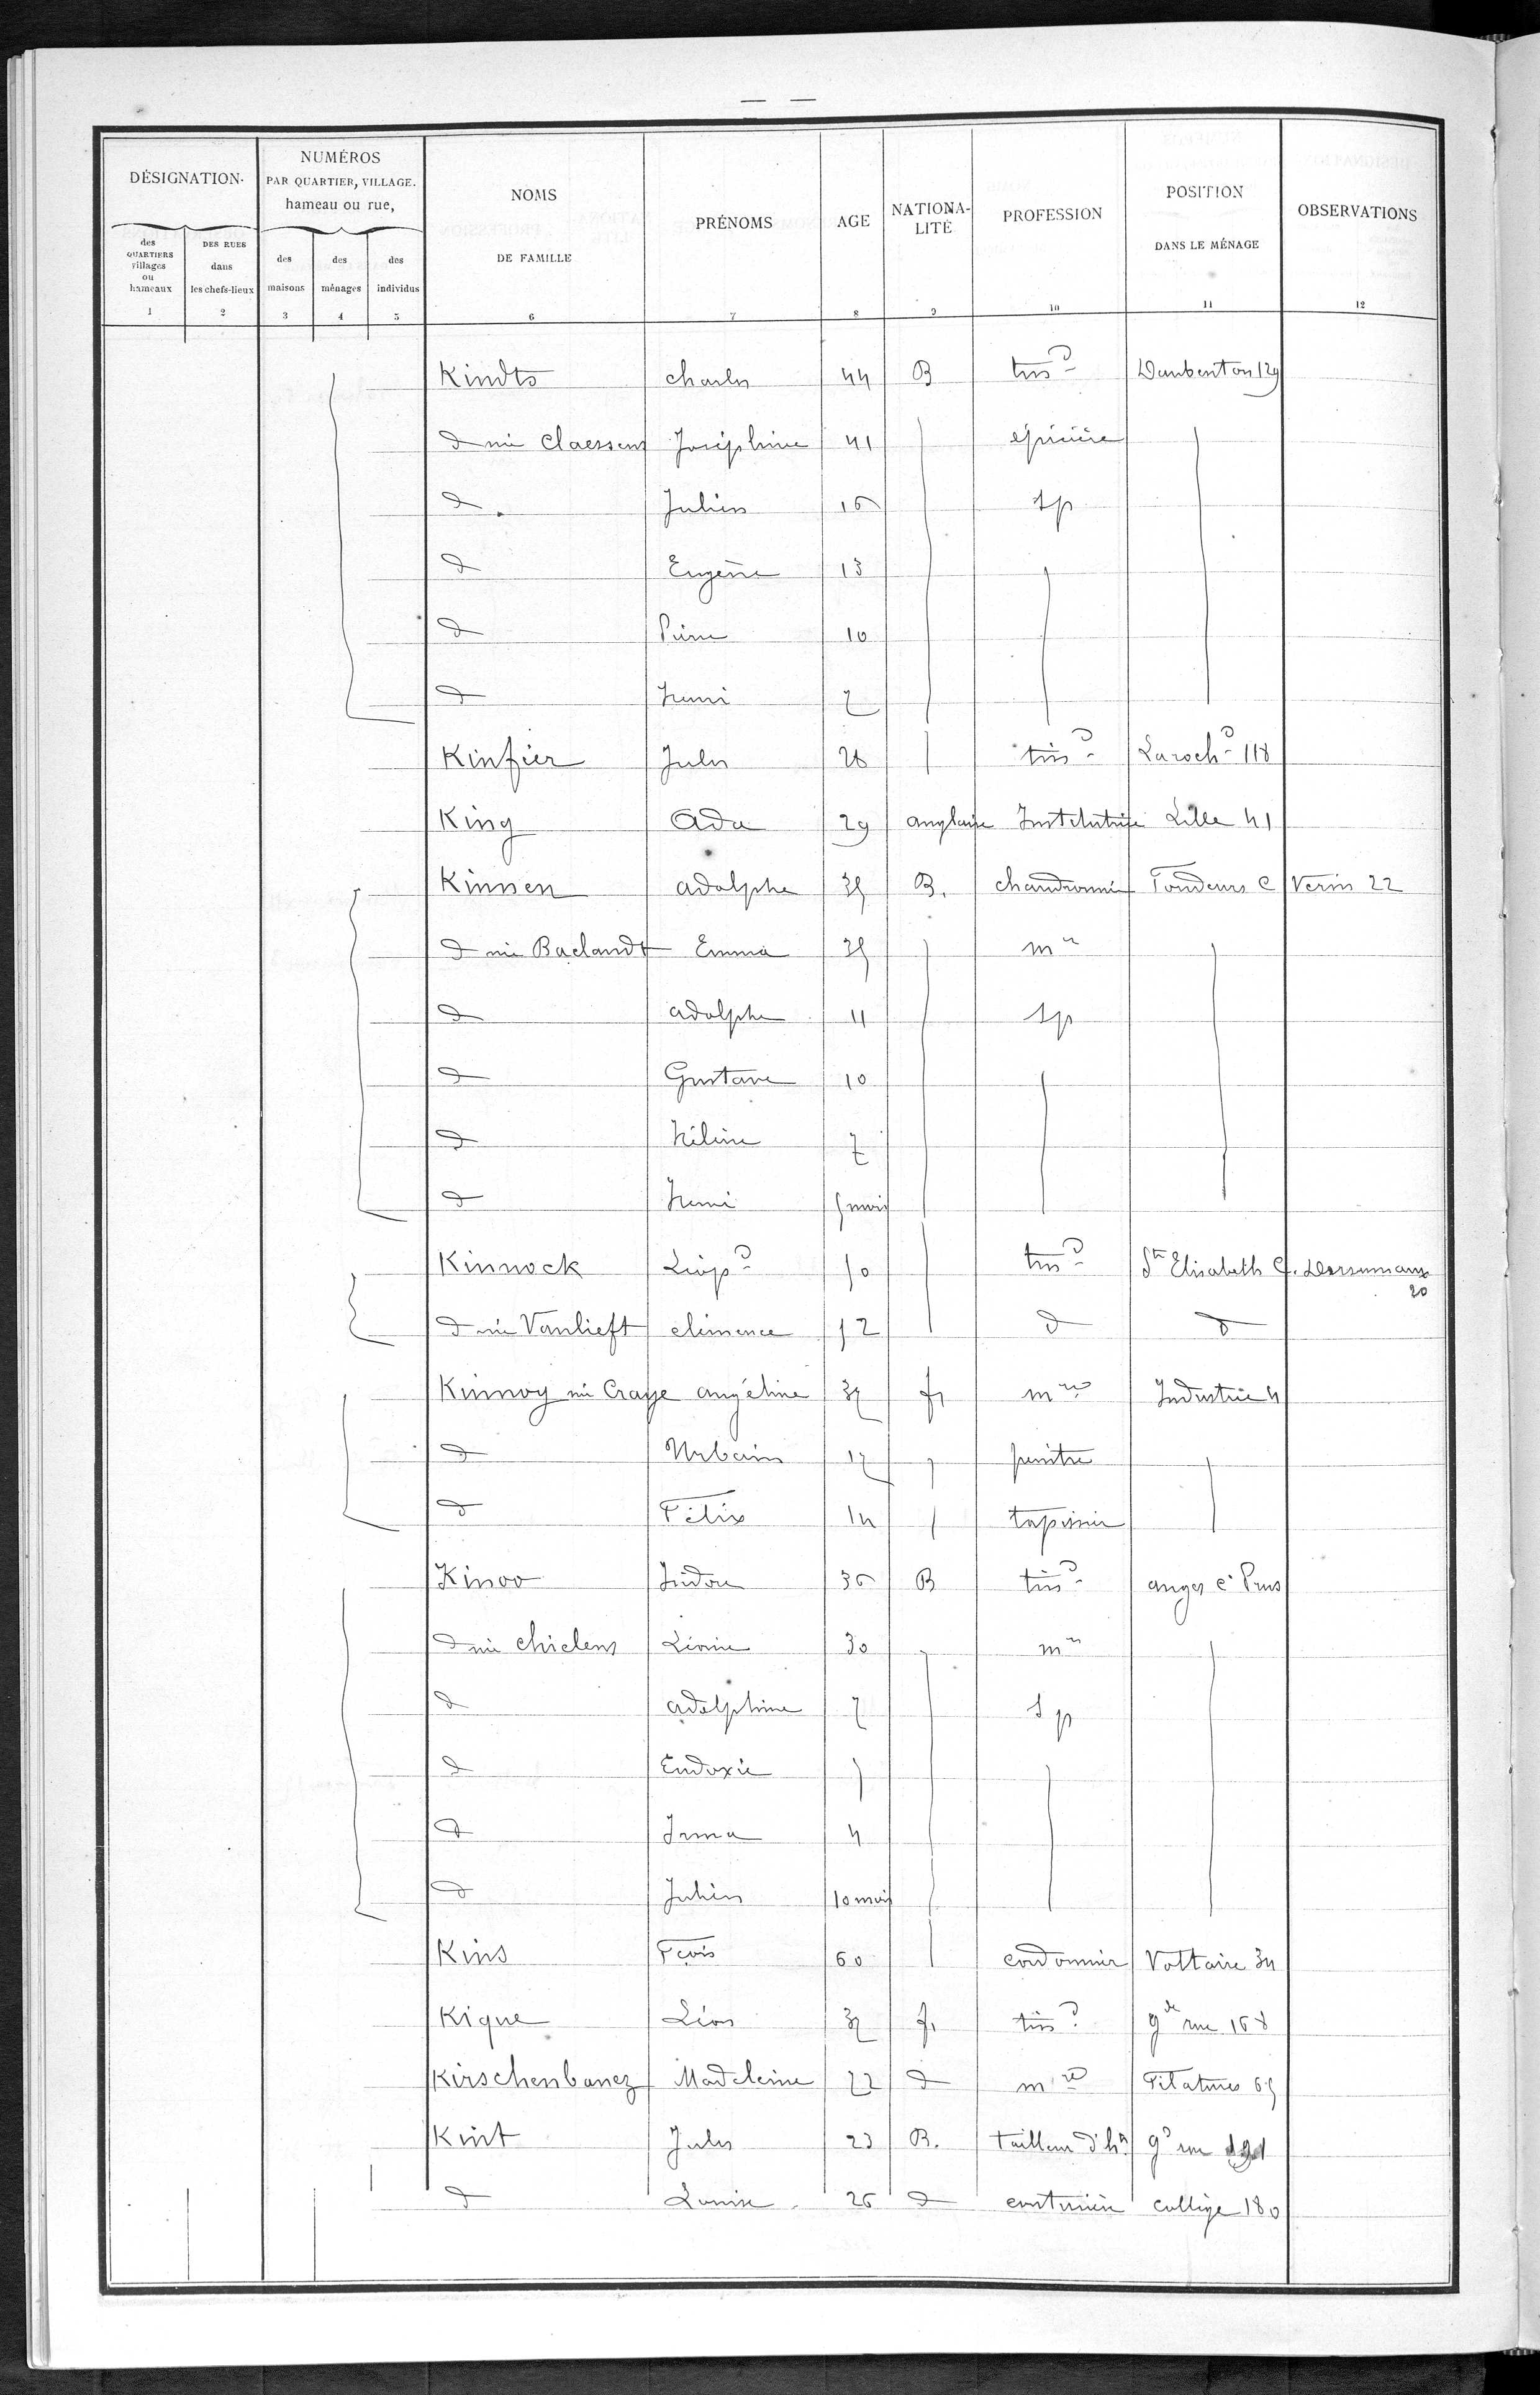 DÉSIGNATION.
NUMÉROS
PAR QUARTIER, VILLAGE.
hameau ou rue,
NOMS
DE FAMILLE
PRÉNOMS
AGE
NATIONA-
LITÉ
PROFESSION
POSITION
DANS LE MÉNAGE
OBSERVATIONS
des
QUARTIERS
villages
ou
hameaux
DES RUES
dans
les chefs-lieux
des
maisons
des
ménages
des
individus
1 2 3 4 5 6 7 8 9 10 11 12
Kindts Charles 44 B tiss d Daubenton 129
d née Claessens Joséphine 41 épicière
d Julien 16 sp
d Eugène 13
d Pierre 10
d Henri 7
Kinfier Jules 28 tiss d Laroch d 118
King Ada 29 anglaise Institutrice Lille 41
Kinnen adolphe 35 B. chaudronnier Tondeurs C Verin 22
d née Baclandt Emma 35 mre
d adolphe 11 sp
d Gustave 10
d Hélène 7
d Henri 5 mois
Kinnock Léop d 50 tiss d Ste Elisabeth C. Dersumaux
20
d née Vanlieft clémence 52 d d
Kinnoy née Craye angéline 37 fr mre Industrie 4
d Urbain 17 peintre
d Félix 14 tapissier
Kinoo Isidore 36 B tiss d anges C Prus
d née Chielens Léonie 30 mre
d adelphine 7 sp
d Eudoxie 5
d Irma 4
d Julien 10 mois
Kins Fçois 60 cordonnier Voltaire 34
Kique Léon 37 fr tiss d gde rue 168
Kirschenbanez Madeleine 22 d mre Filatures 65
Kint Jules 23 B. tailleur d'h gd rue
d Louise 26 d couturière collège 180